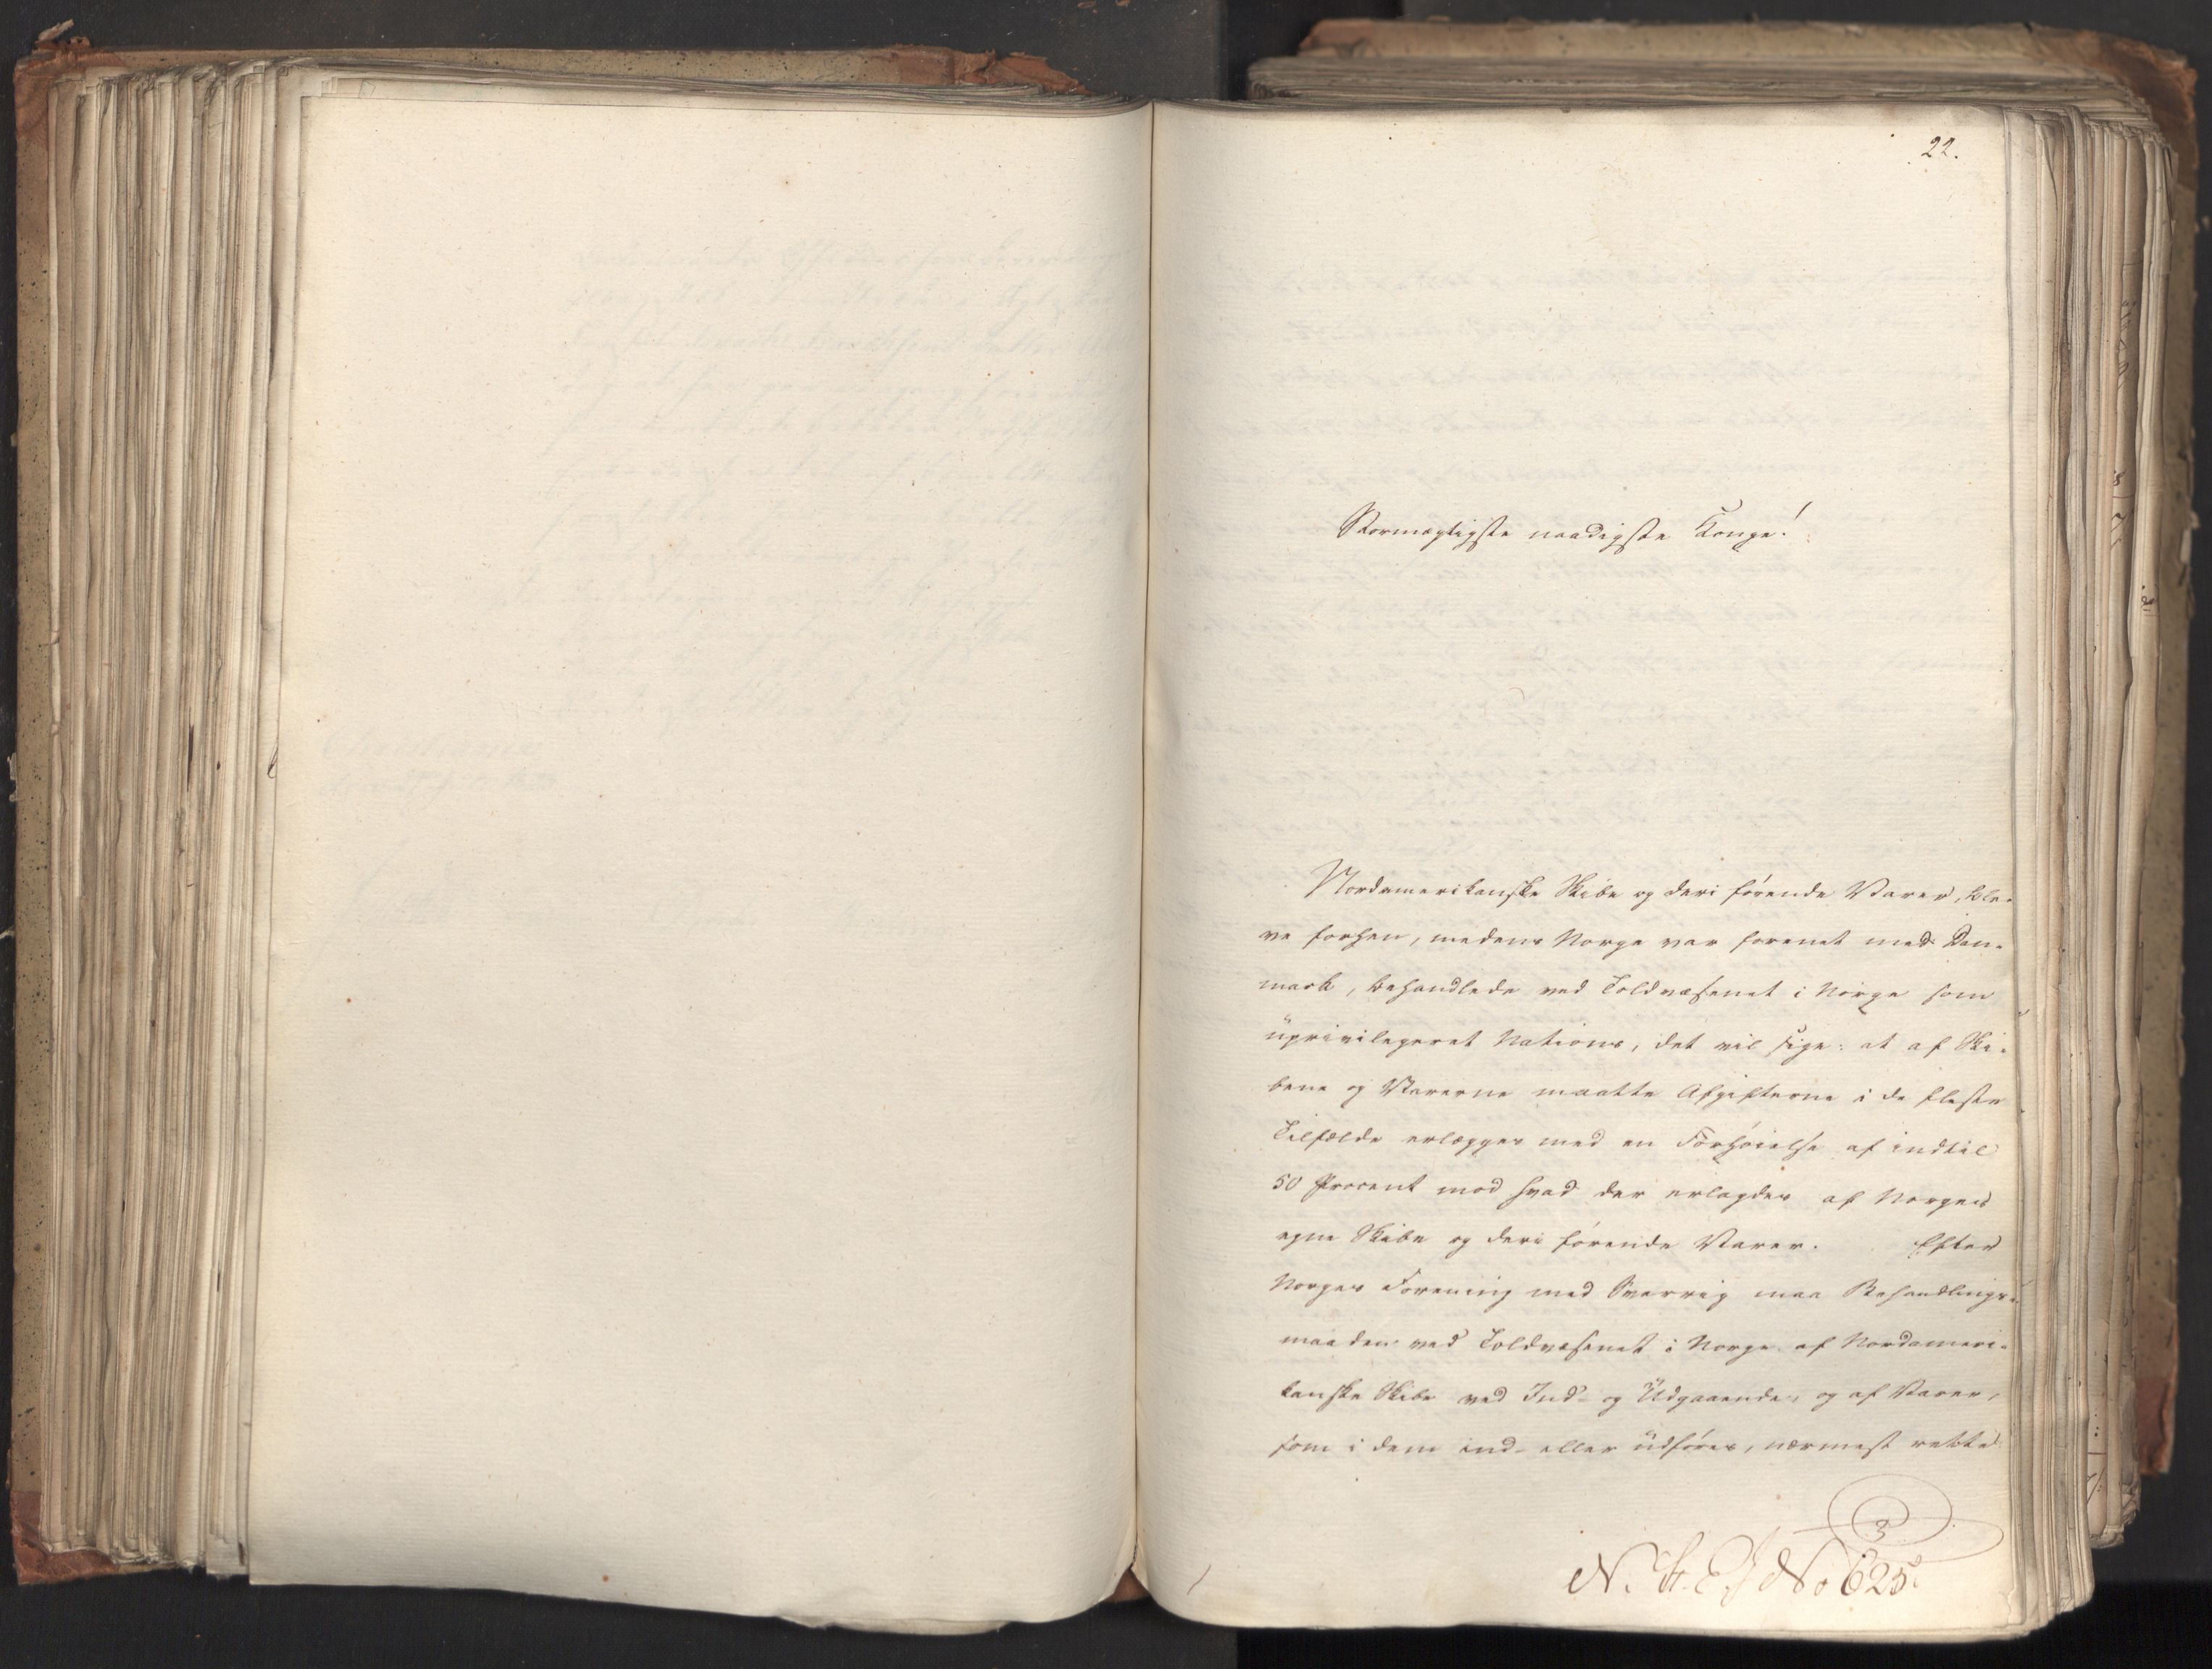 22.
Stormægtigste naadigste Konge!
Nordamerikanske Skibe og deri førende Varer, ble-
ve forhen, medens Norge var forenet med Dan-
mark, behandlede ved Toldvæsenet i Norge som
üprivilegeret Nations, det vil sige: at af Ski-
bene og Varerne maatte Afgifterne i de fleste
Tilfælde erlægges med en Forhøielse af indtil
50 Procent mod hvad der erlagdes af Norges
egne Skibe og deri førende Varer. Efter
Norges Forening med Sverrig maa Behandlings-
maaden ved Toldvæsenet i Norge af Nordameri-
kanske Skibe ved Ind- og Üdgaaende, og af Varer,
som i dem ind- eller üdføres, nærmest rette
3
N. St. E. J No 625.